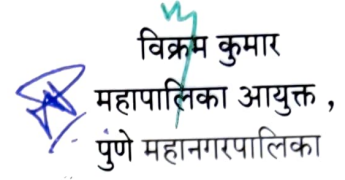 विक्रम कुमार
महापालिका आयुक्त ,
पुणे महानगरपालिका